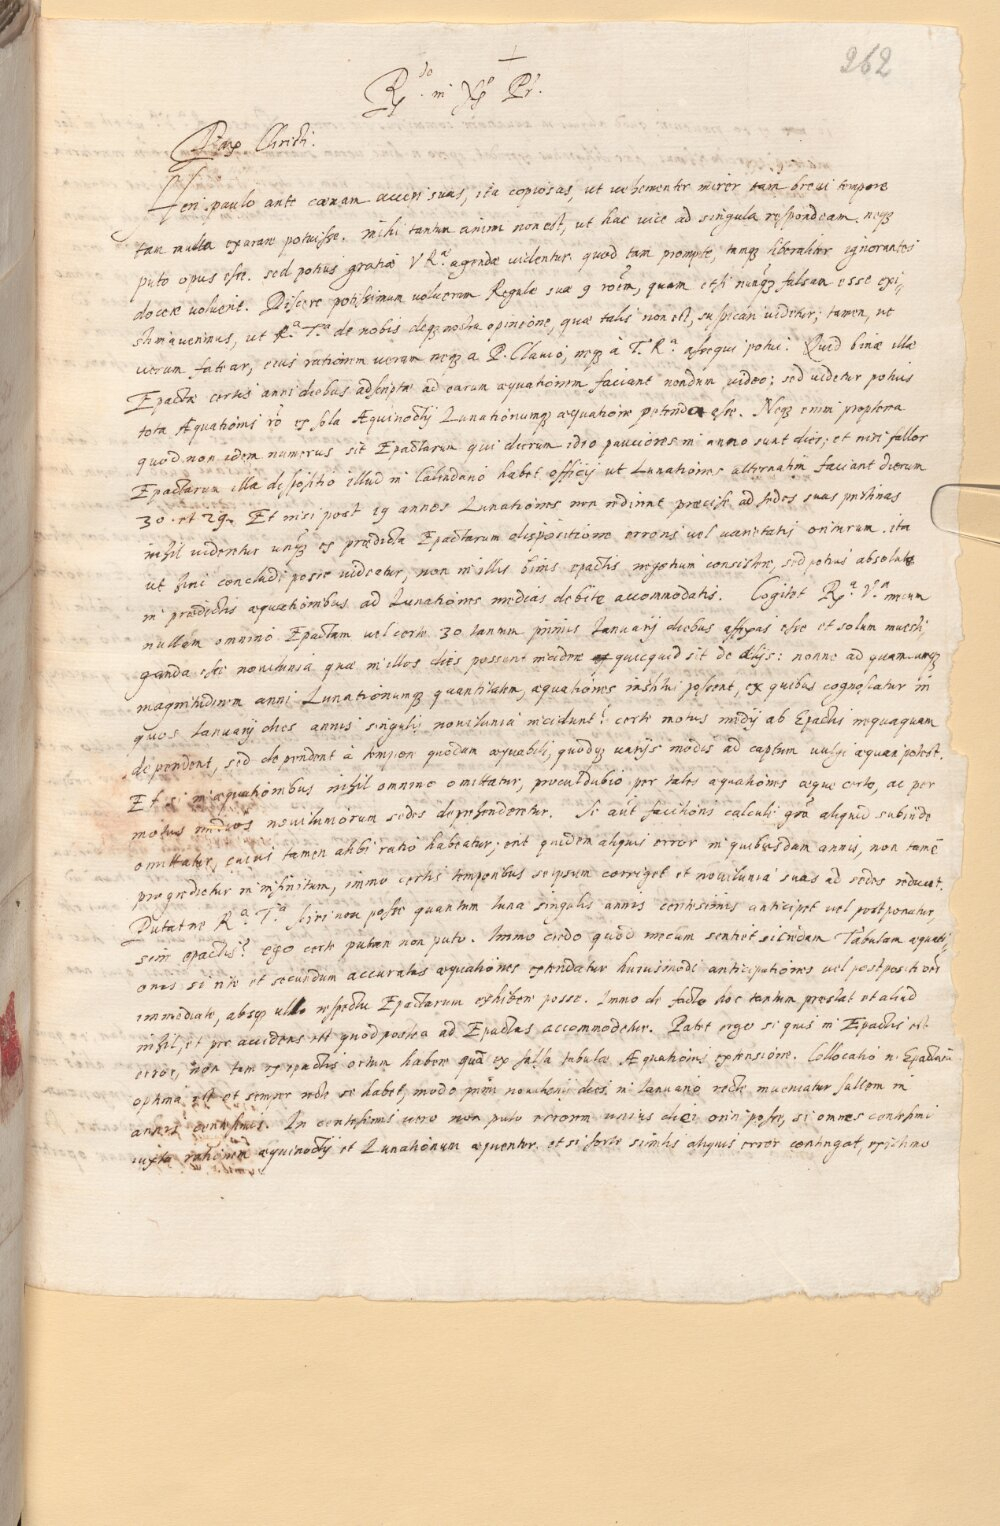 262
R.do in Xp.o Pr.
Pax Christi.
Heri paulo ante cœnam accepi suas, ita copiosas, ut vehementer mirer tam brevi tempore
tam multa exarare potuisse. mihi tantum animi non est, ut hac vice ad singula respondeam. neq3
puto opus esse. sed potius gratiæ V R.æ agendæ videntur quod tam prompte, tamq3 liberaliter ignorantes
docere voluerit. Discere potissimum volueram Regulæ suæ 9 roēm, quam etsi nunq3 falsam esse exi,
stimaverimus, ut R.a T.a de nobis deq3 nostra opinione, quæ talis non est, suspicari videtur; tamen, ut
verum fatear, eius rationem veram neq3 a P. Clavio, neq3 à T. R.a assequi potui. Quid binæ illæ
Epactæ certis anni diebus adscriptæ ad earum æquationem faciant nondum video; sed videtur potius
tota Æquationis rō ex sola Æquinoctij Lunationumq3 æquatione petenda esse. Neq3 enim propterea
quod non idem numerus sit Epactarum qui dierum idio pauciores in anno sunt dies; et nisi fallor
Epactarum illa dispositio illud in Calendario habet officij ut Lunationes alternatim faciant dierum
30. et 29. Et nisi post 19 annos Lunationes non redirent præcise ad sedes suas pristinas
nihil videretur unq3 ex prædicta Epactarum dispositione erroris vel varietatis oriturum. ita
ut hinc concludi posse videatur, non in illis binis epactis negotium consistere, sed potius absolute
in prædictis æquationibus ad Lunationes medias debite accommodatis. Cogitet R.a V.ra mecum
nullam omnino Epactam vel certe 30 tantum primis Ianuarij diebus affixas esse et solum investi
ganda esse novilunia quæ in illos dies possunt incidere quicquid sit de alijs: nonne ad quamcunq3
magnitudinem anni Lunationumq3 quantitatem, æquationes institui possent, ex quibus cognoscatur in
quos Ianuarij dies annis singulis novilunia incidunt? certe motus medij ab Epactis nequaquam
dependent, sed dependent à tempore quodam æquabili, quodq3 varijs modis ad captum vulgi æquari potest.
Et si in æquationibus nihil omnino omittatur, procul dubio per tales æquationes æque certo, ac per
motus medios noviluniorum sedes deprehenderentur. Si aūt facilioris calculi grā aliquid subinde
omittatur, cuius tamen alibi ratio habeatur; erit quidem aliquis error in quibusdam annis, non tamē
progredietur in infinitum, immo certis temporibus seipsum corriget et novilunia suas ad sedes reducet.
Putatne R.a T.a sciri non posse quantum luna singulis annis centesimis anticipet vel postponatur,
sine epactis? ego certe putare non puto. Immo credo quod mecum sentiet siquidem Tabulam æquati,
onis si rite et secundum accuratas æquationes extendatur huiusmodi anticipationes vel postpositiones
immediate, absq3 ullo respectu Epactarum exhibere posse. Immo de facto hoc tantum præstat et aliud
nihil, et per accidens est quod postea ad Epactas accommodetur. Patet ergo si quis in Epactis est
error, non tam ex epactis ortum habere quā ex falsa tabulæ Æquationis extensione. Collocatio n. Epactarū
optima est et semper recte se habet, modo primi novilunij dies in Ianuario recte inveniatur saltem in
annis centesimis. In centesimis vero non puto errorem unius diei oriri posse, si omnes centesimi
iuxta rationem æquinoctij et Lunationum æquentur. et si forte similis aliquis error contingat, existimo